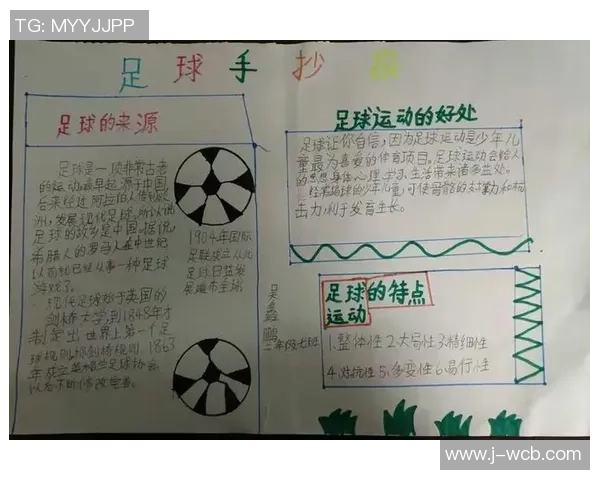 TG: MYYJJPP
足球手抄报
足球的来源
足球是一项非常古老
的运动,最早起源于中国,
后来经过阿拉伯人传到欧
洲,发展现代足球。所以说
足球的故乡是中国。据说,
希腊人的罗马人在中世纪
以前就已经从事一种足球
游戏了。
现代足球始于英国的
剑桥大学,到1848年才
制定出世界上第一个足
球规则称剑桥规则,1863
年成立英格兰足球协会
以后不断修改完善。
1904年国际
足联成立从此
足球日益发
展遍布全球
鹏
二年级七班
足球运动的好处
足球让你自信,因为足球运动是少年儿
童最为喜爱的体育项目。足球运动会给人
的思想身体心理、学习、生活带来诸多益处。
力,利于发育生长。
足球的特点
运动
1.整体性 2.大局性 3.精细性
4.对抗性 5.多变性 6.易行性
www.j-wcb.com